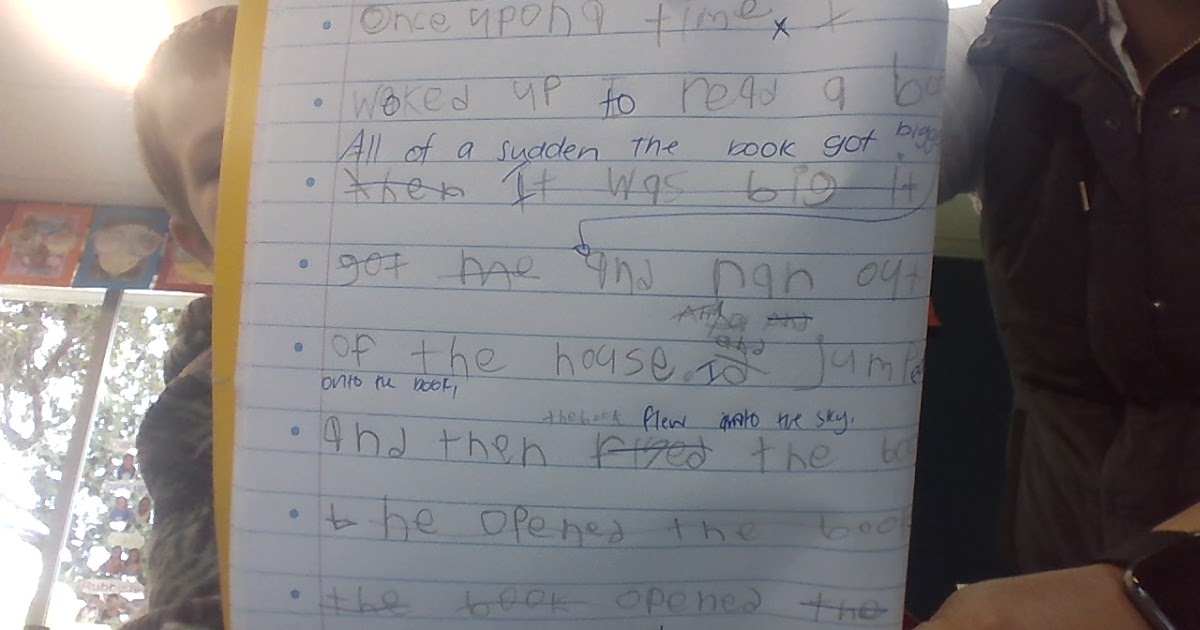 Once upon a time
woked up to read a
All of a sudden the book got
then It was big it
got me and nan out
of the house. and jumpe
onto the book,
the book flew into the sky.
And then the
he opened the boo
the book opened the